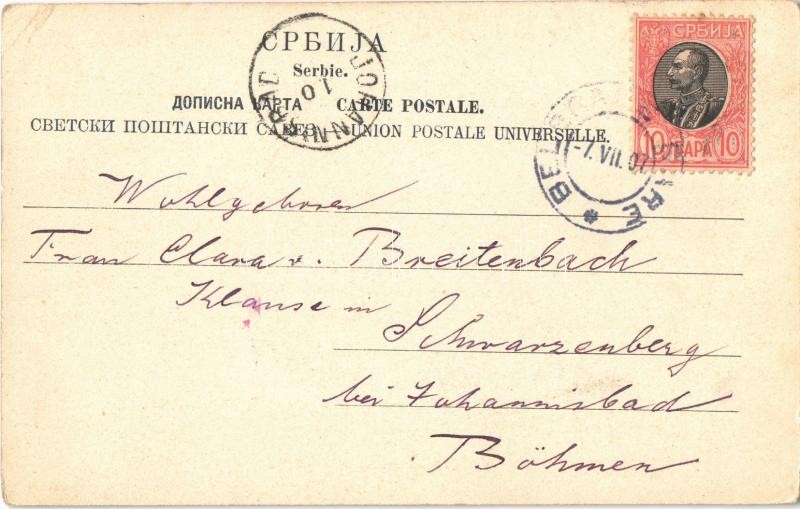 СРБИЈА
Serbie.
ДОПИСНА КАРТА CARTE POSTALE.
СВЕТСКИ ПОШТАНСКИ САВЕЗ UNION POSTALE UNIVERSELLE.
СРБИЈА
10 ПАРА 10
JOHANNISBAD
10
-7.VII.07
Wohlgeboren
Frau Clara v. Breitenbach
Klause in
Schwarzenberg
bei Johannisbad
Böhmen